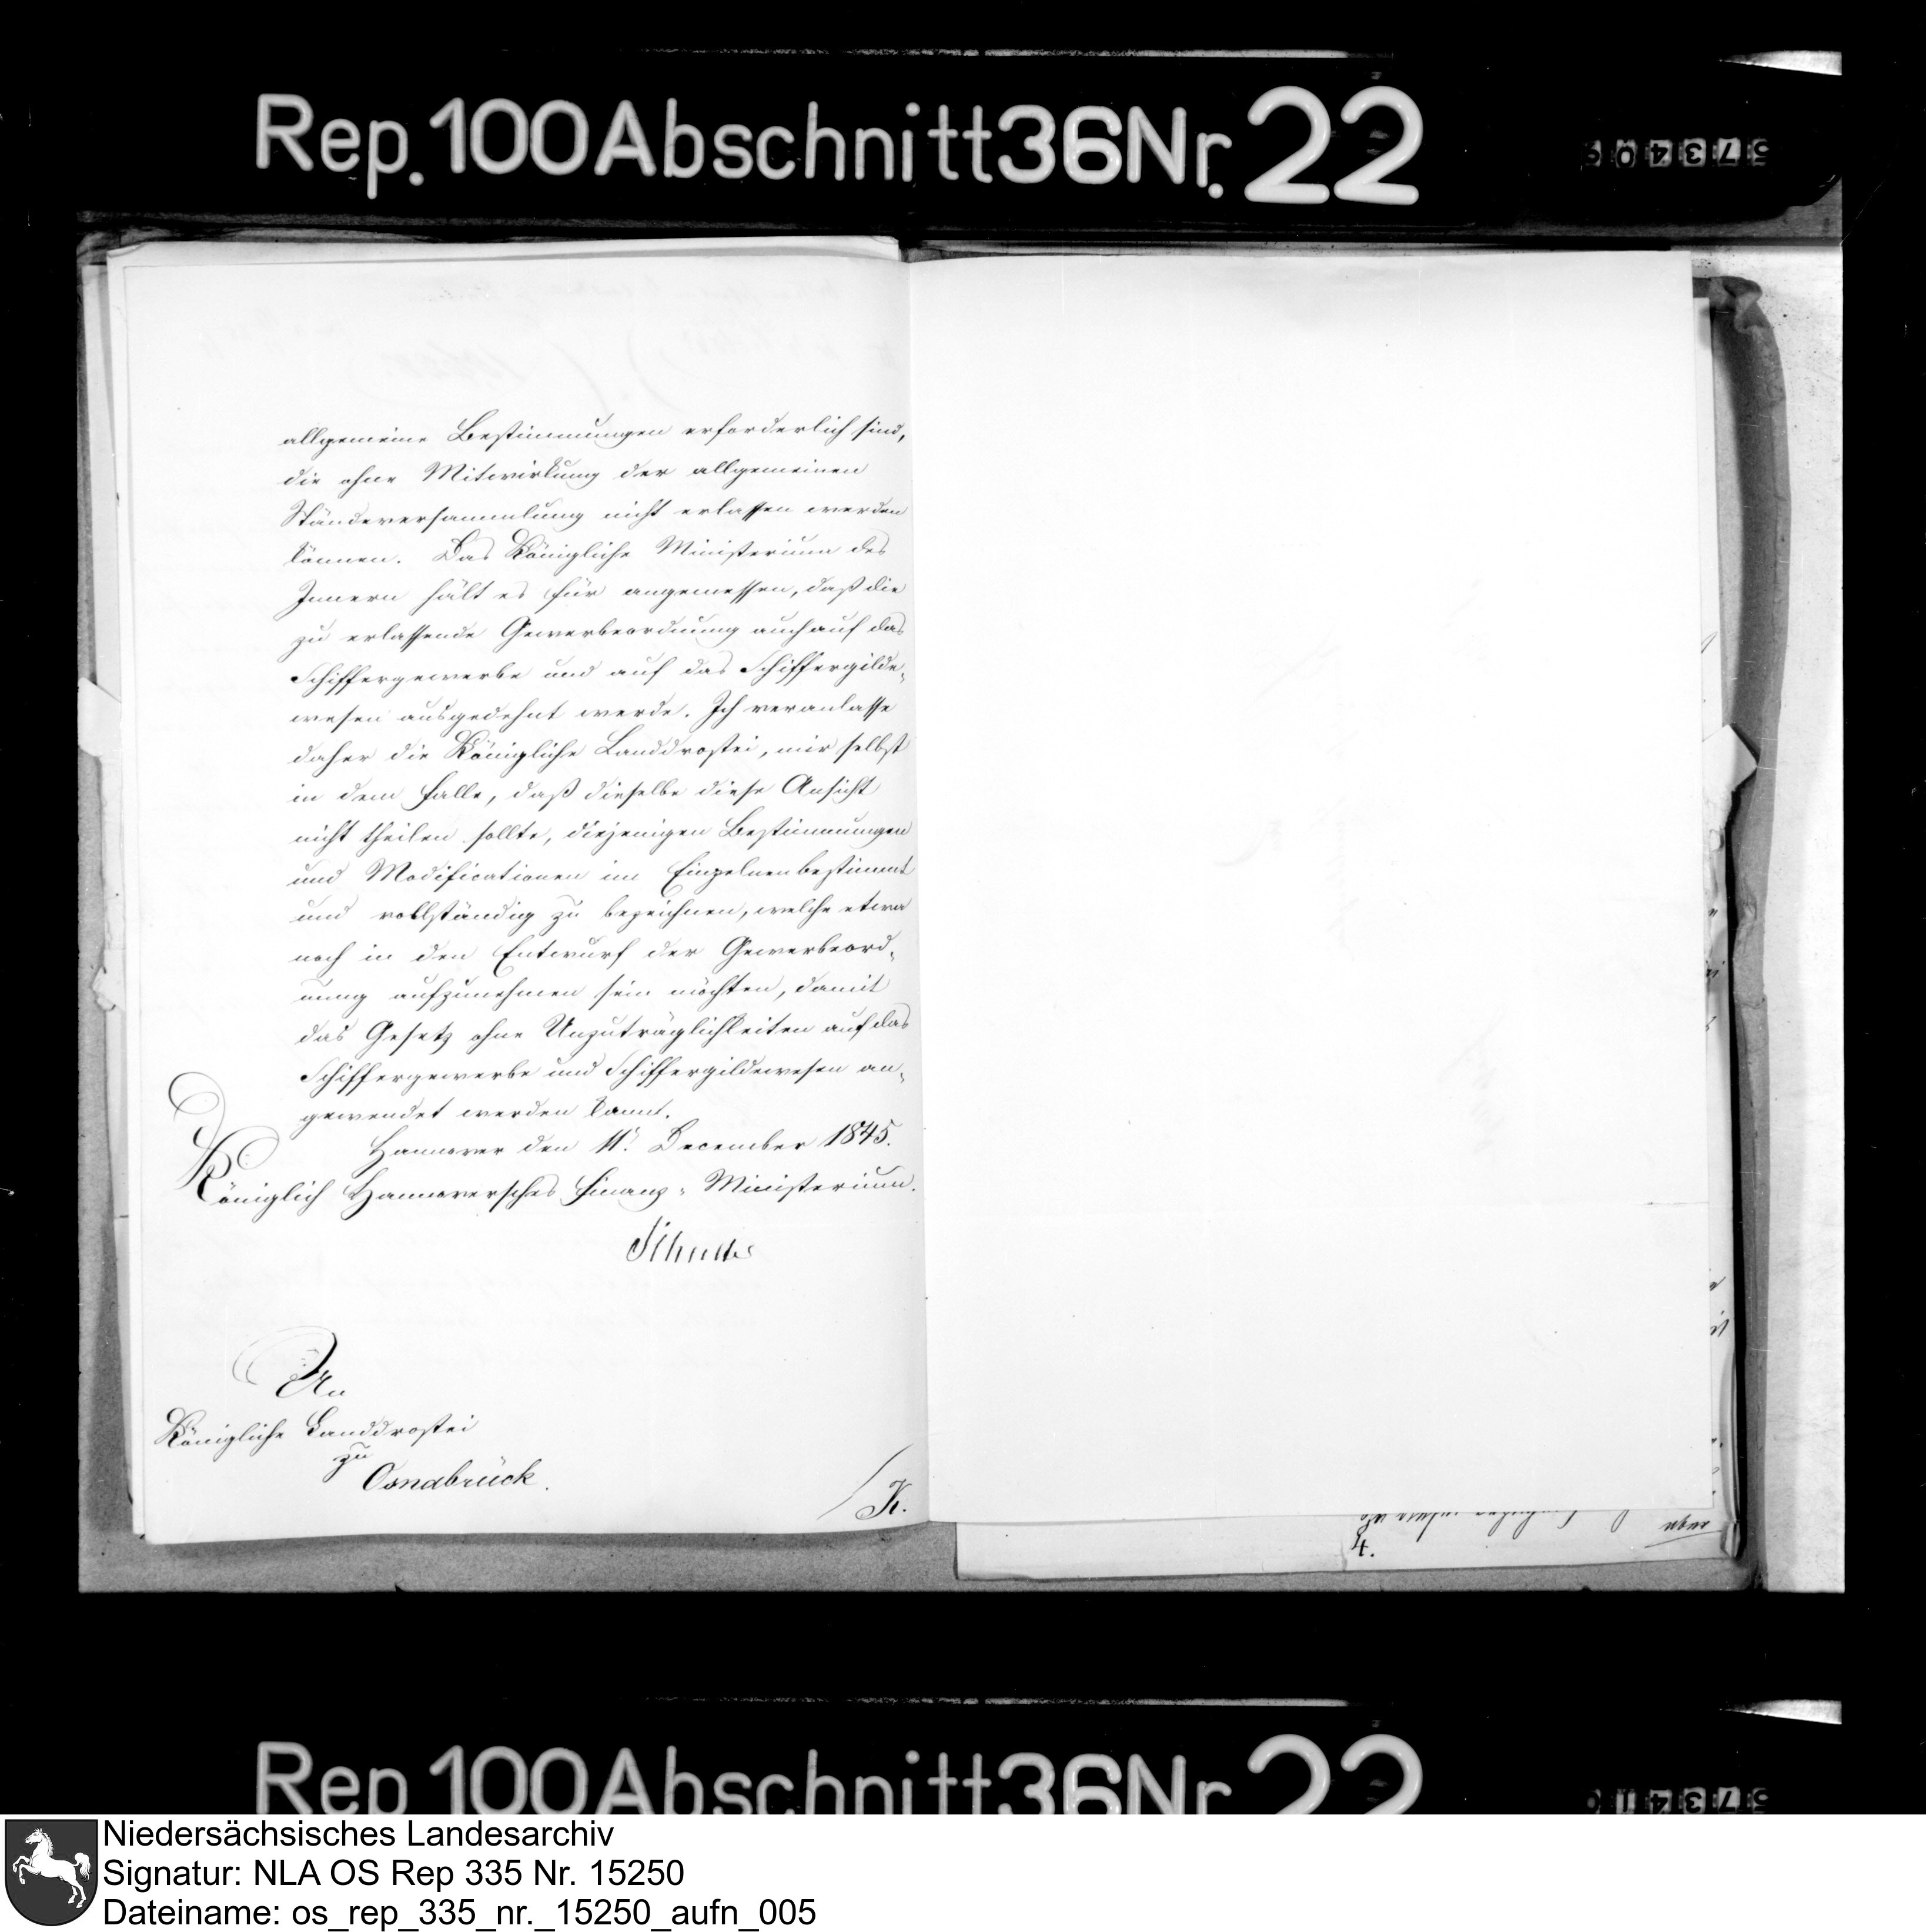 Rep. 100 Abschnitt 36 Nr. 22
allgemeine Bestimmungen erforderlich sind,
die ohne Mitwirkung der allgemeinen
Ständeversammlung nicht erlassen werden
können. Das Königliche Ministerium des
Innern hält es für angemessen, daß die
zu erlassende Gewerbeordnung auch auf das
Schiffergewerbe und auf das Schiffergilde-
wesen ausgedehnt werde. Ich veranlasse
daher die Königliche Landdrostei, mir selbst
in dem Falle, daß dieselbe diese Ansicht
nicht theilen sollte, diejenigen Bestimmungen
und Modificationen im Einzelnen bestimmt
und vollständig zu bezeichnen, welche etwa
noch in den Entwurf der Gewerbeord-
nung aufzunehmen sein möchten, damit
das Gesetz ohne Unzuträglichkeiten auf das
Schiffergewerbe und Schiffergildewesen an-
gewendet werden kann.
Hannover den 11. December 1845.
Königlich Hannoversches Finanz-Ministerium.
An
Königliche Landdrostei
zu
Osnabrück.
K.
4.
Rep 100 Abschnitt 36 Nr. 22
Niedersächsisches Landesarchiv
Signatur: NLA OS Rep 335 Nr. 15250
Dateiname: os_rep_335_nr._15250_aufn_005